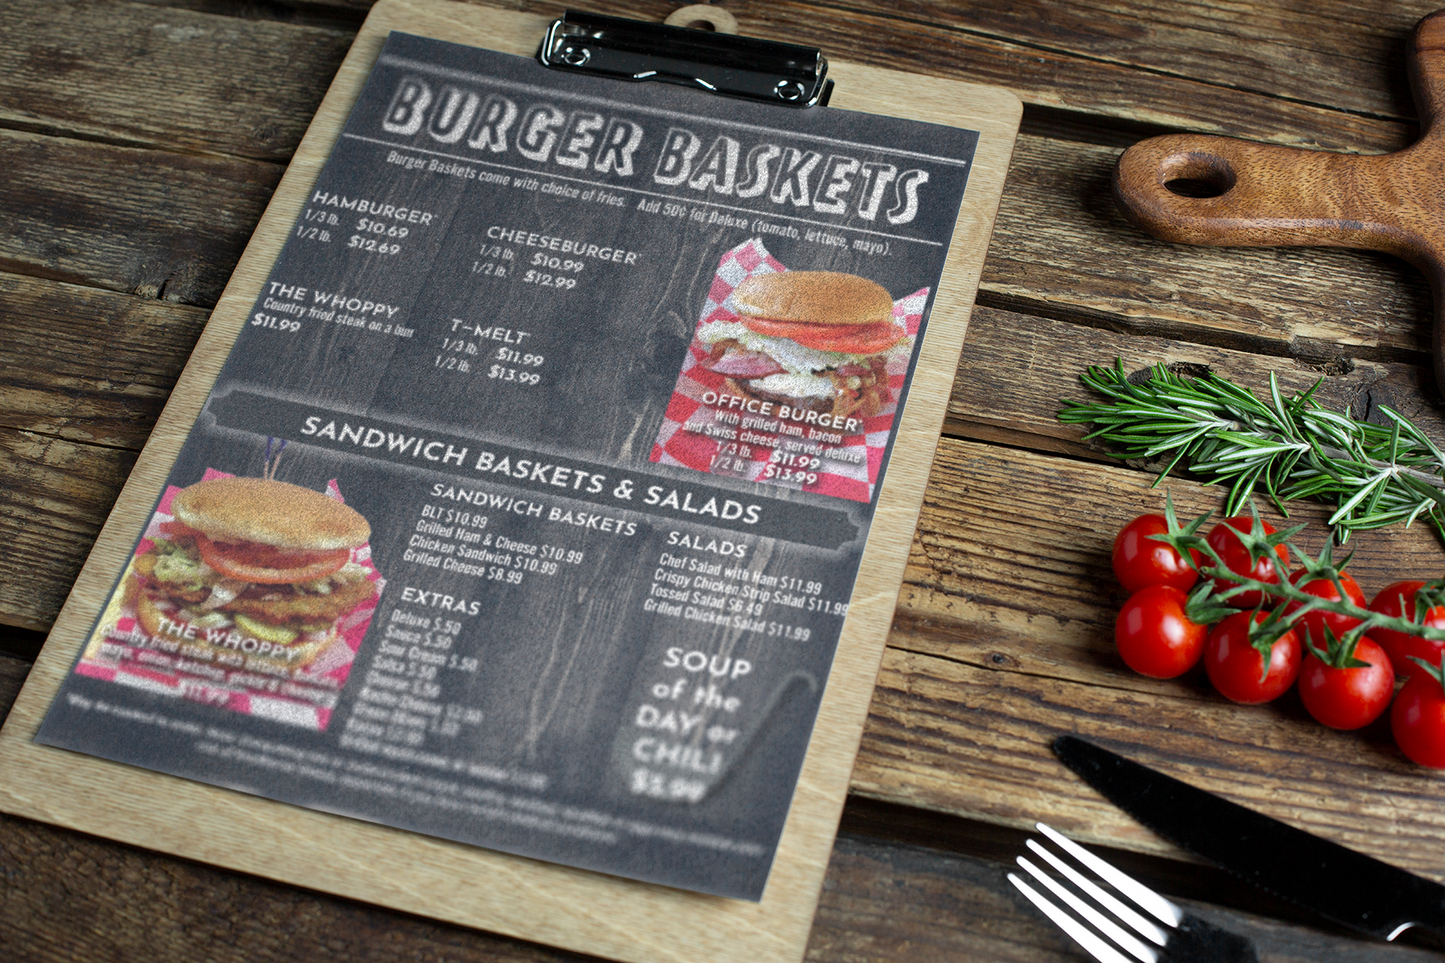 BURGER BASKETS
Burger Baskets come with choice of fries. Add 50¢ for Deluxe (tomato, lettuce, mayo).
HAMBURGER*
1/3 lb. $10.69
1/2 lb. $12.69
CHEESEBURGER*
1/3 lb. $10.99
1/2 lb. $12.99
THE WHOPPY
Country fried steak on a bun
$11.99
T-MELT
1/3 lb. $11.99
1/2 lb. $13.99
OFFICE BURGER*
With grilled ham, bacon
and Swiss cheese, served deluxe
1/3 lb. $11.99
1/2 lb. $13.99
SANDWICH BASKETS & SALADS
SANDWICH BASKETS
BLT $10.99
Grilled Ham & Cheese $10.99
Chicken Sandwich $10.99
Grilled Cheese $8.99
SALADS
Chef Salad with Ham $11.99
Crispy Chicken Strip Salad $11.99
Tossed Salad $6.49
Grilled Chicken Salad $11.99
EXTRAS
Deluxe $.50
Sauce $.50
Sour Cream $.50
Salsa $.50
THE WHOPPY
Country fried steak with lettuce,
mayo, onion, ketchup, pickle &
$11.99
SOUP
of the
DAY or
CHILI